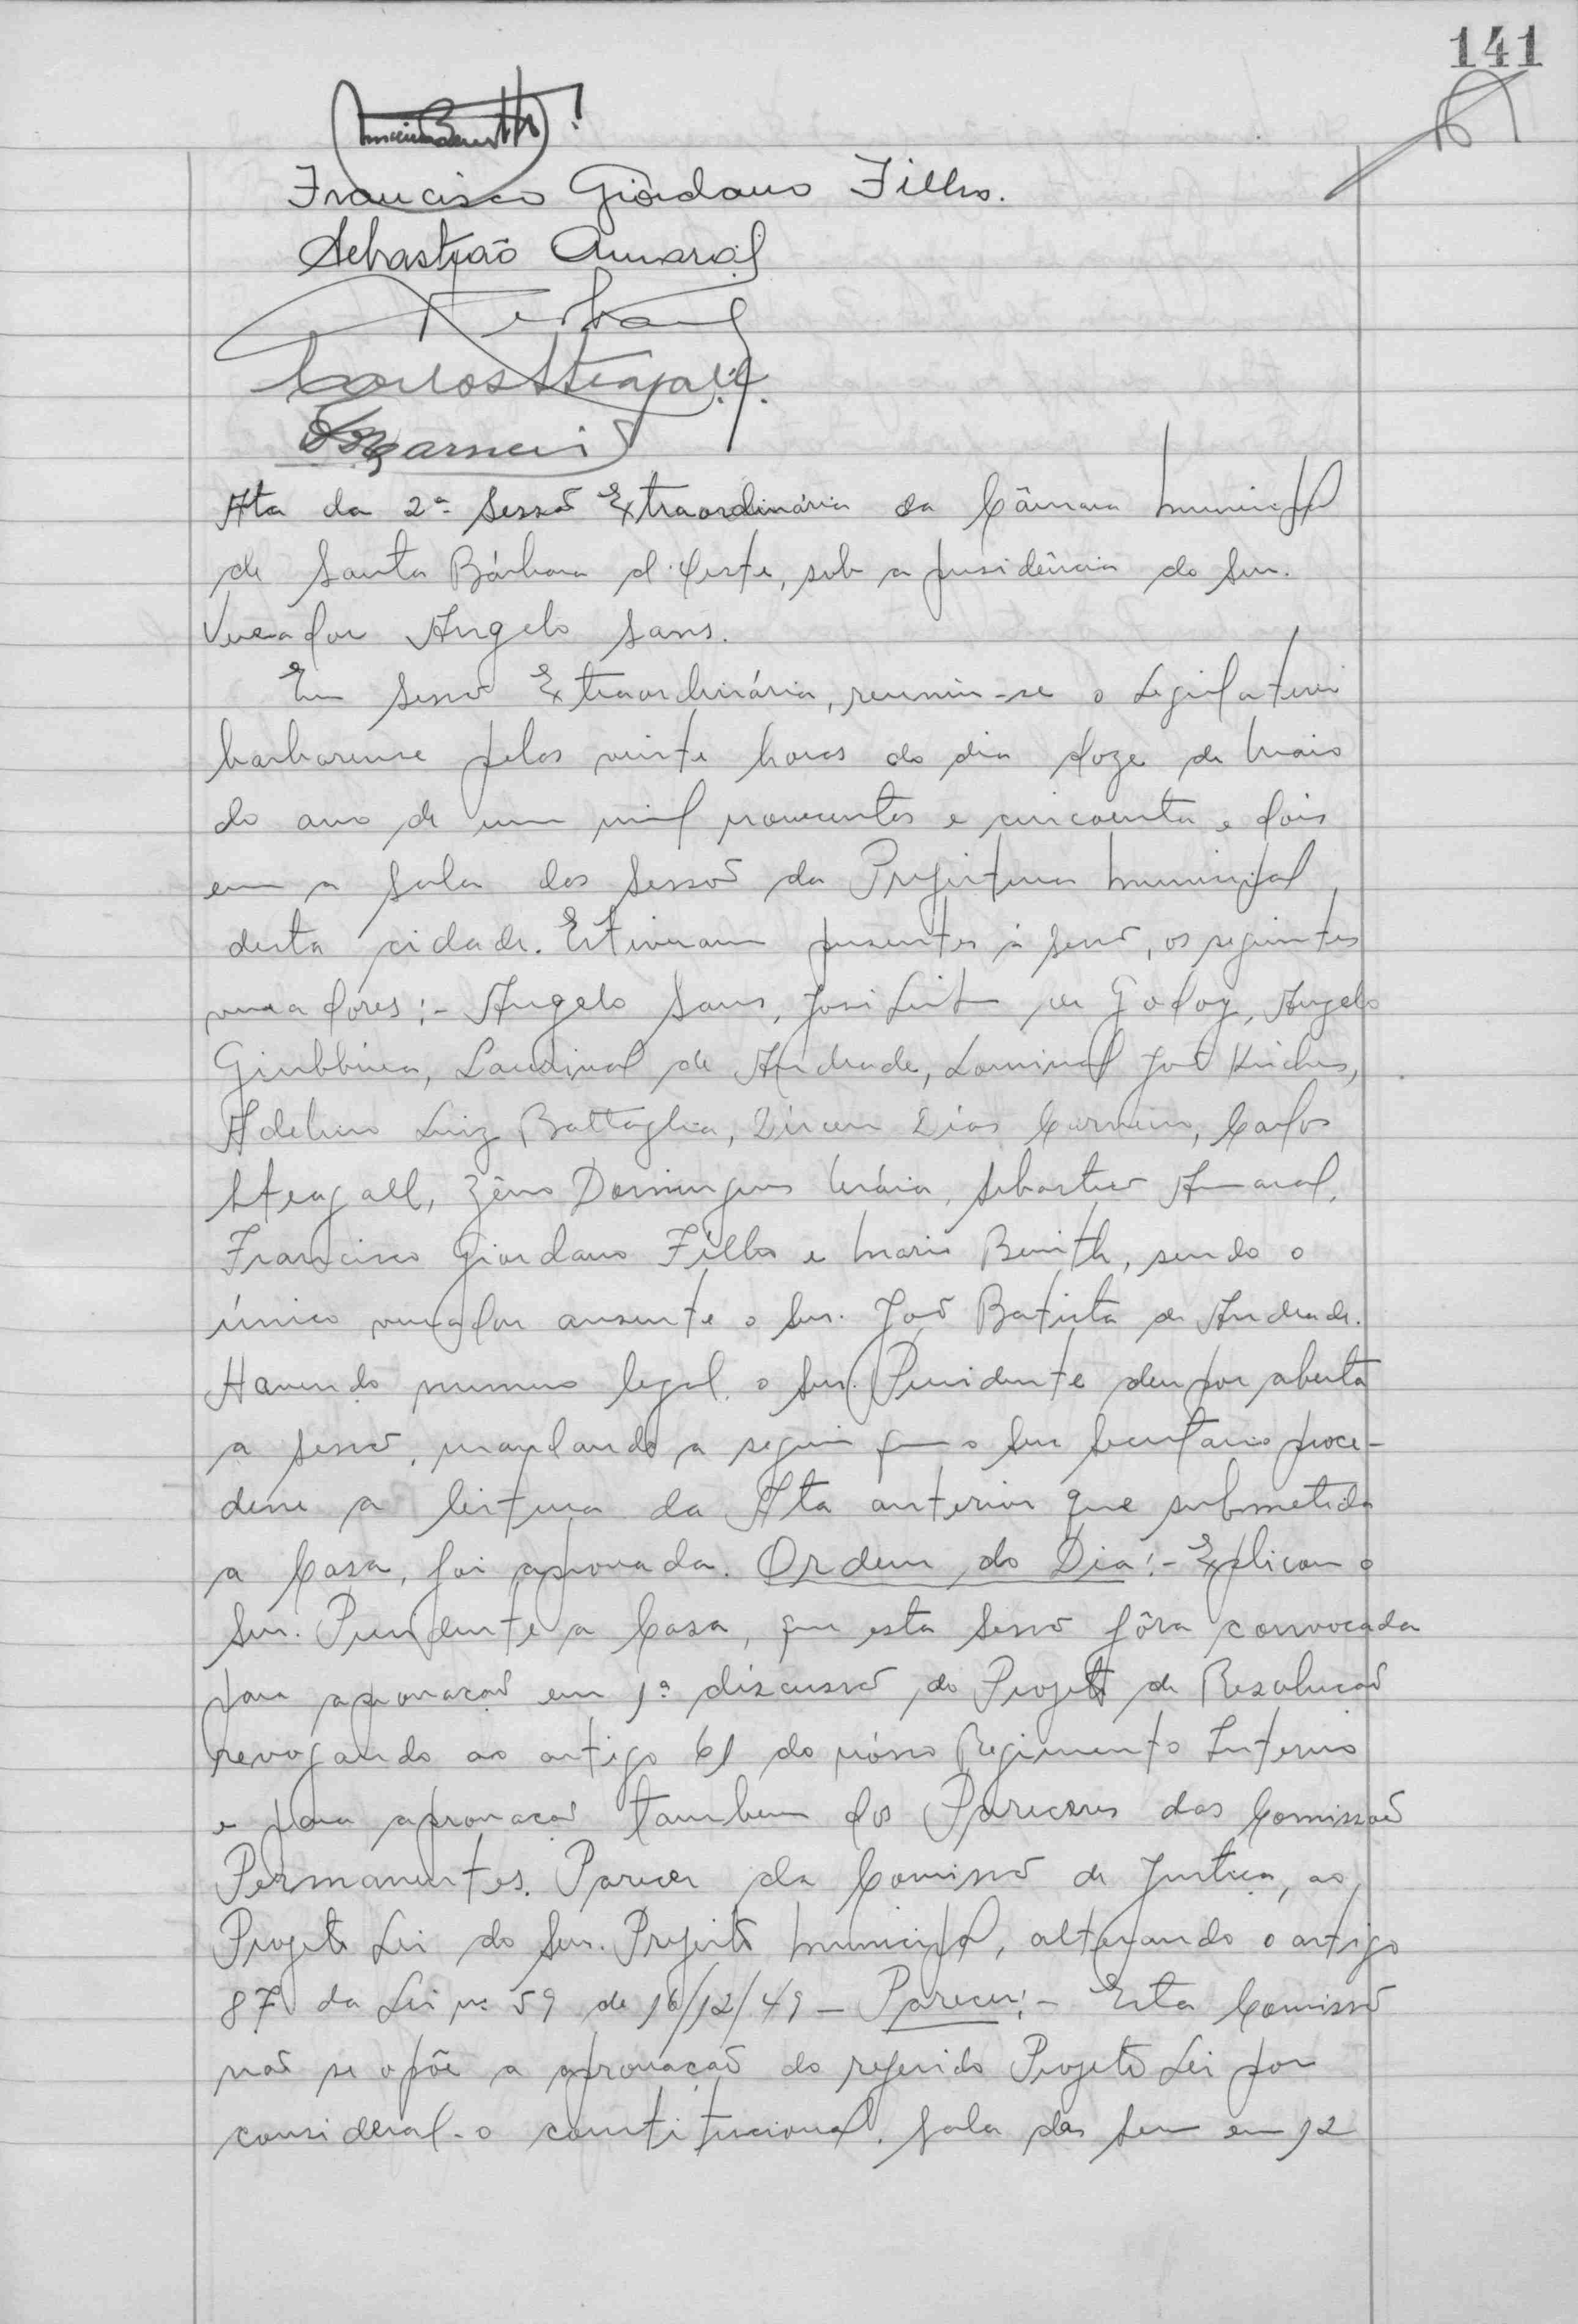 141
Francisco Giordano Filho.
Sebastião Amaral
Carlos Steagall.
Ata da 2ª Sessão Extraordinária da Câmara Municipal
de Santa Bárbara d'Oeste, sob a presidência do Snr.
Vereador Angelo Sans.
Em Sessão Extraordinária, reuniu-se o Legislativo
barbarense pelas vinte horas do dia doze de Maio
do ano de um mil novecentos e cincoenta e dois
em a sala das Sessões da Prefeitura Municipal,
desta cidade. Estiveram presentes à sessão, os seguintes
vereadores:- Angelo Sans, José Leite de Godoy, Angelo
Giubbina, Laudival de Andrade, José
Adelino Luiz Battaglia, Dirceu Dias Carneiro, Carlos
Steagall, Zêno Domingues Maia, Sebastião Amaral,
Francisco Giordano Filho e Mario Benith, sendo o
único vereador ausente o Snr. João Batista de Andrade.
Havendo numero legal, o Snr. Presidente deu por aberta
a sessão, mandando a seguir que o Snr Secretario proce-
desse a leitura da Ata anterior que submetida
a Casa, foi aprovada. Ordem do Dia:- Explicou o
Snr. Presidente a Casa, que esta sessão fôra convocada
para aprovação em 1ª discussão do Projeto de Resolução
revogando ao artigo 61 do nósso Regimento Interno
e para aprovação tambem dos Pareceres das Comissões
Permanentes. Parecer da Comissão de Justiça, ao
Projeto Lei do Snr. Prefeito Municipal, alterando o artigo
87 da Lei nº 59 de 16/12/49 - Parecer:- Esta Comissão
não se opõe a aprovação do referido Projeto Lei por
consideral-o constitucional. Sala das Ses em 12